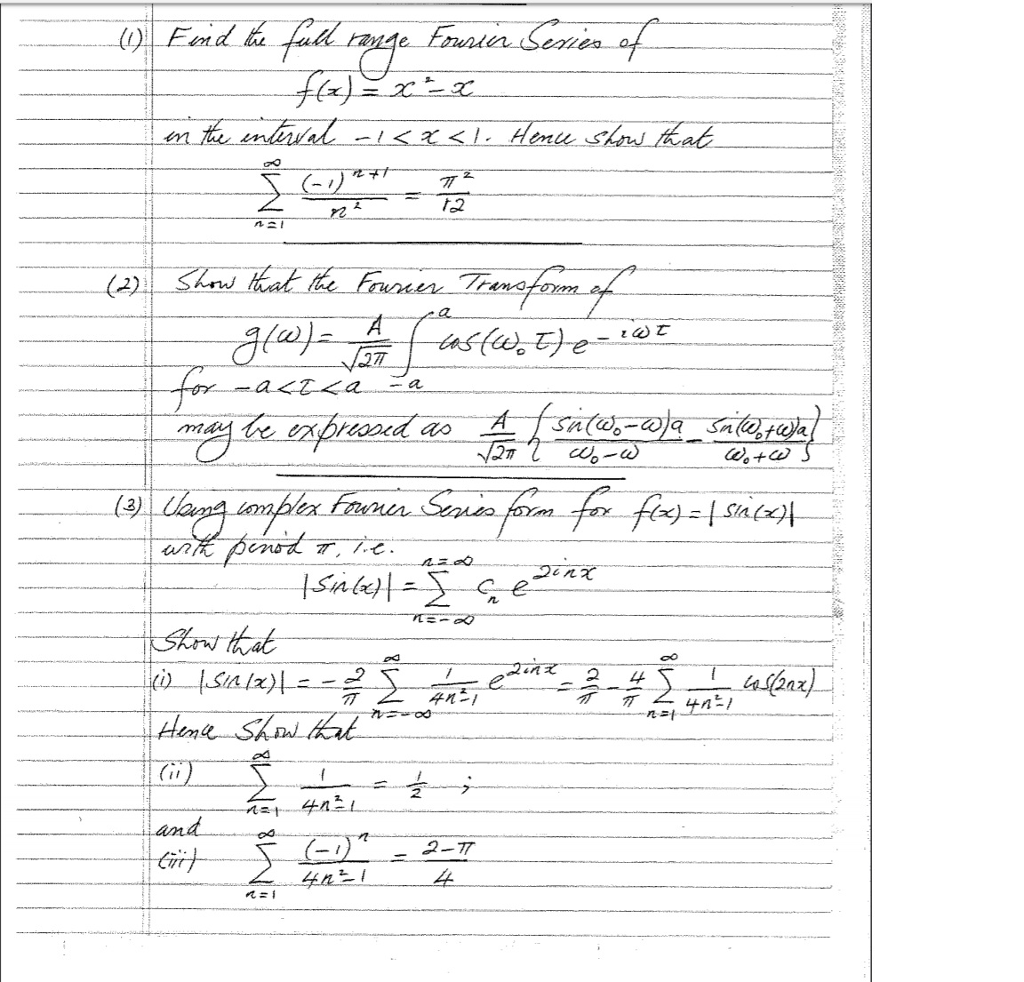 (1) Find the full range Fourier Series of
f(x) = x² - x
in the interval -1 < x < 1. Hence show that
∑_{n=1}^{∞} (-1)^{n+1}/n² = π²/12
(2) Show that the Fourier Transform of
g(ω) = A/√2π ∫_{-a}^{a} cos(ω₀τ) e^{-iωτ}
for -a<τ<a
may be expressed as A/√2π { sin(ω₀-ω)a/ω₀-ω - sin(ω₀+ω)a/ω₀+ω }
(3) Using complex Fourier Series form for f(x) = |sin(x)|
with period π, i.e.
|sin(x)| = ∑_{n=-∞}^{n=∞} cₙ e^{2inx}
Show that
(i) |sin(x)| = -2/π ∑_{n=-∞}^{∞} 1/4n²-1 e^{2inx} = 2/π - 4/π ∑_{n=1}^{∞} 1/4n²-1 cos(2nx)
Hence Show that
(ii) ∑_{n=1}^{∞} 1/4n²-1 = 1/2 ;
and
(iii) ∑_{n=1}^{∞} (-1)^n/4n²-1 = 2-π/4